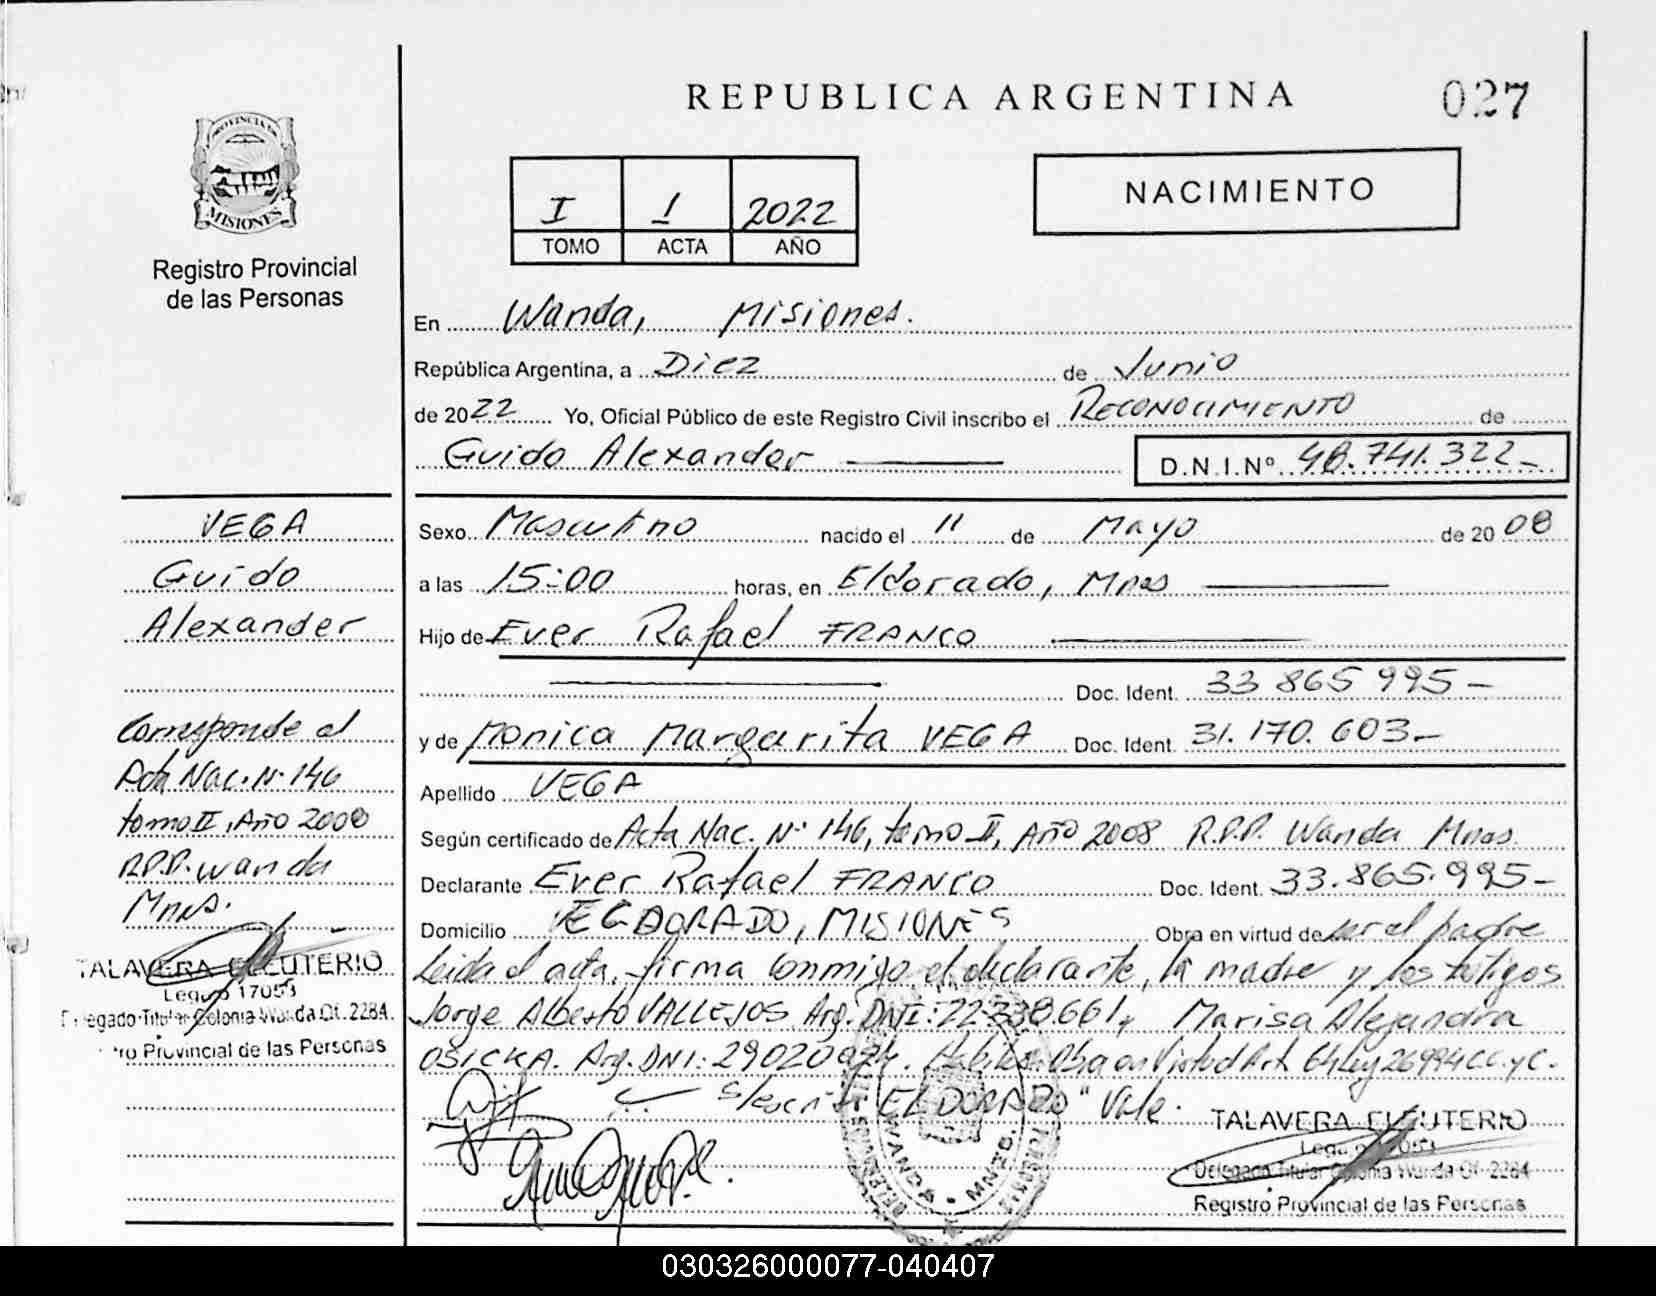 REPUBLICA ARGENTINA
027
PROVINCIA DE
MISIONES
Registro Provincial
de las Personas
I 1 2022
TOMO ACTA AÑO
NACIMIENTO
En Wanda, Misiones.
República Argentina, a Diez de Junio
de 2022 Yo, Oficial Público de este Registro Civil inscribo el RECONOCIMIENTO de
Guido Alexander D.N.I.Nº 48.741.322-
VEGA
Guido
Alexander
Corresponde al
Acta Nac. Nº 146
tomo II, Año 2008
R.P.P. Wanda
Mnes.
TALAVERA ELEUTERIO
Legajo 17053
Delegado Titular Colonia Wanda Of. 2284
Provincial de las Personas
Sexo Masculino nacido el 11 de Mayo de 2008
a las 15:00 horas, en Eldorado, Mnes
Hijo de Ever Rafael FRANCO
Doc. Ident. 33 865 995-
y de Monica Margarita VEGA Doc. Ident 31.170.603-
Apellido VEGA
Según certificado de Acta Nac. Nº 146, tomo II, Año 2008 R.P.P. Wanda Mnes.
Declarante Ever Rafael FRANCO Doc. Ident. 33.865.995-
Domicilio ELDORADO, MISIONES Obra en virtud de ser el padre
Leida el acta, firma conmigo el declarante, la madre y los testigos
Jorge Alberto VALLEJOS Arg. DNI: 22.338.661 y Marisa Alejandra
OSICKA. Arg. DNI: 29020974. Obra en Virtud Art. 64 Ley 26994 CC. y C.
S/escrit "ELDORADO" Vale.
WANDA - MNES.
TALAVERA ELEUTERIO
Legajo 17053
Delegado Titular Colonia Wanda Of. 2284
Registro Provincial de las Personas
030326000077-040407